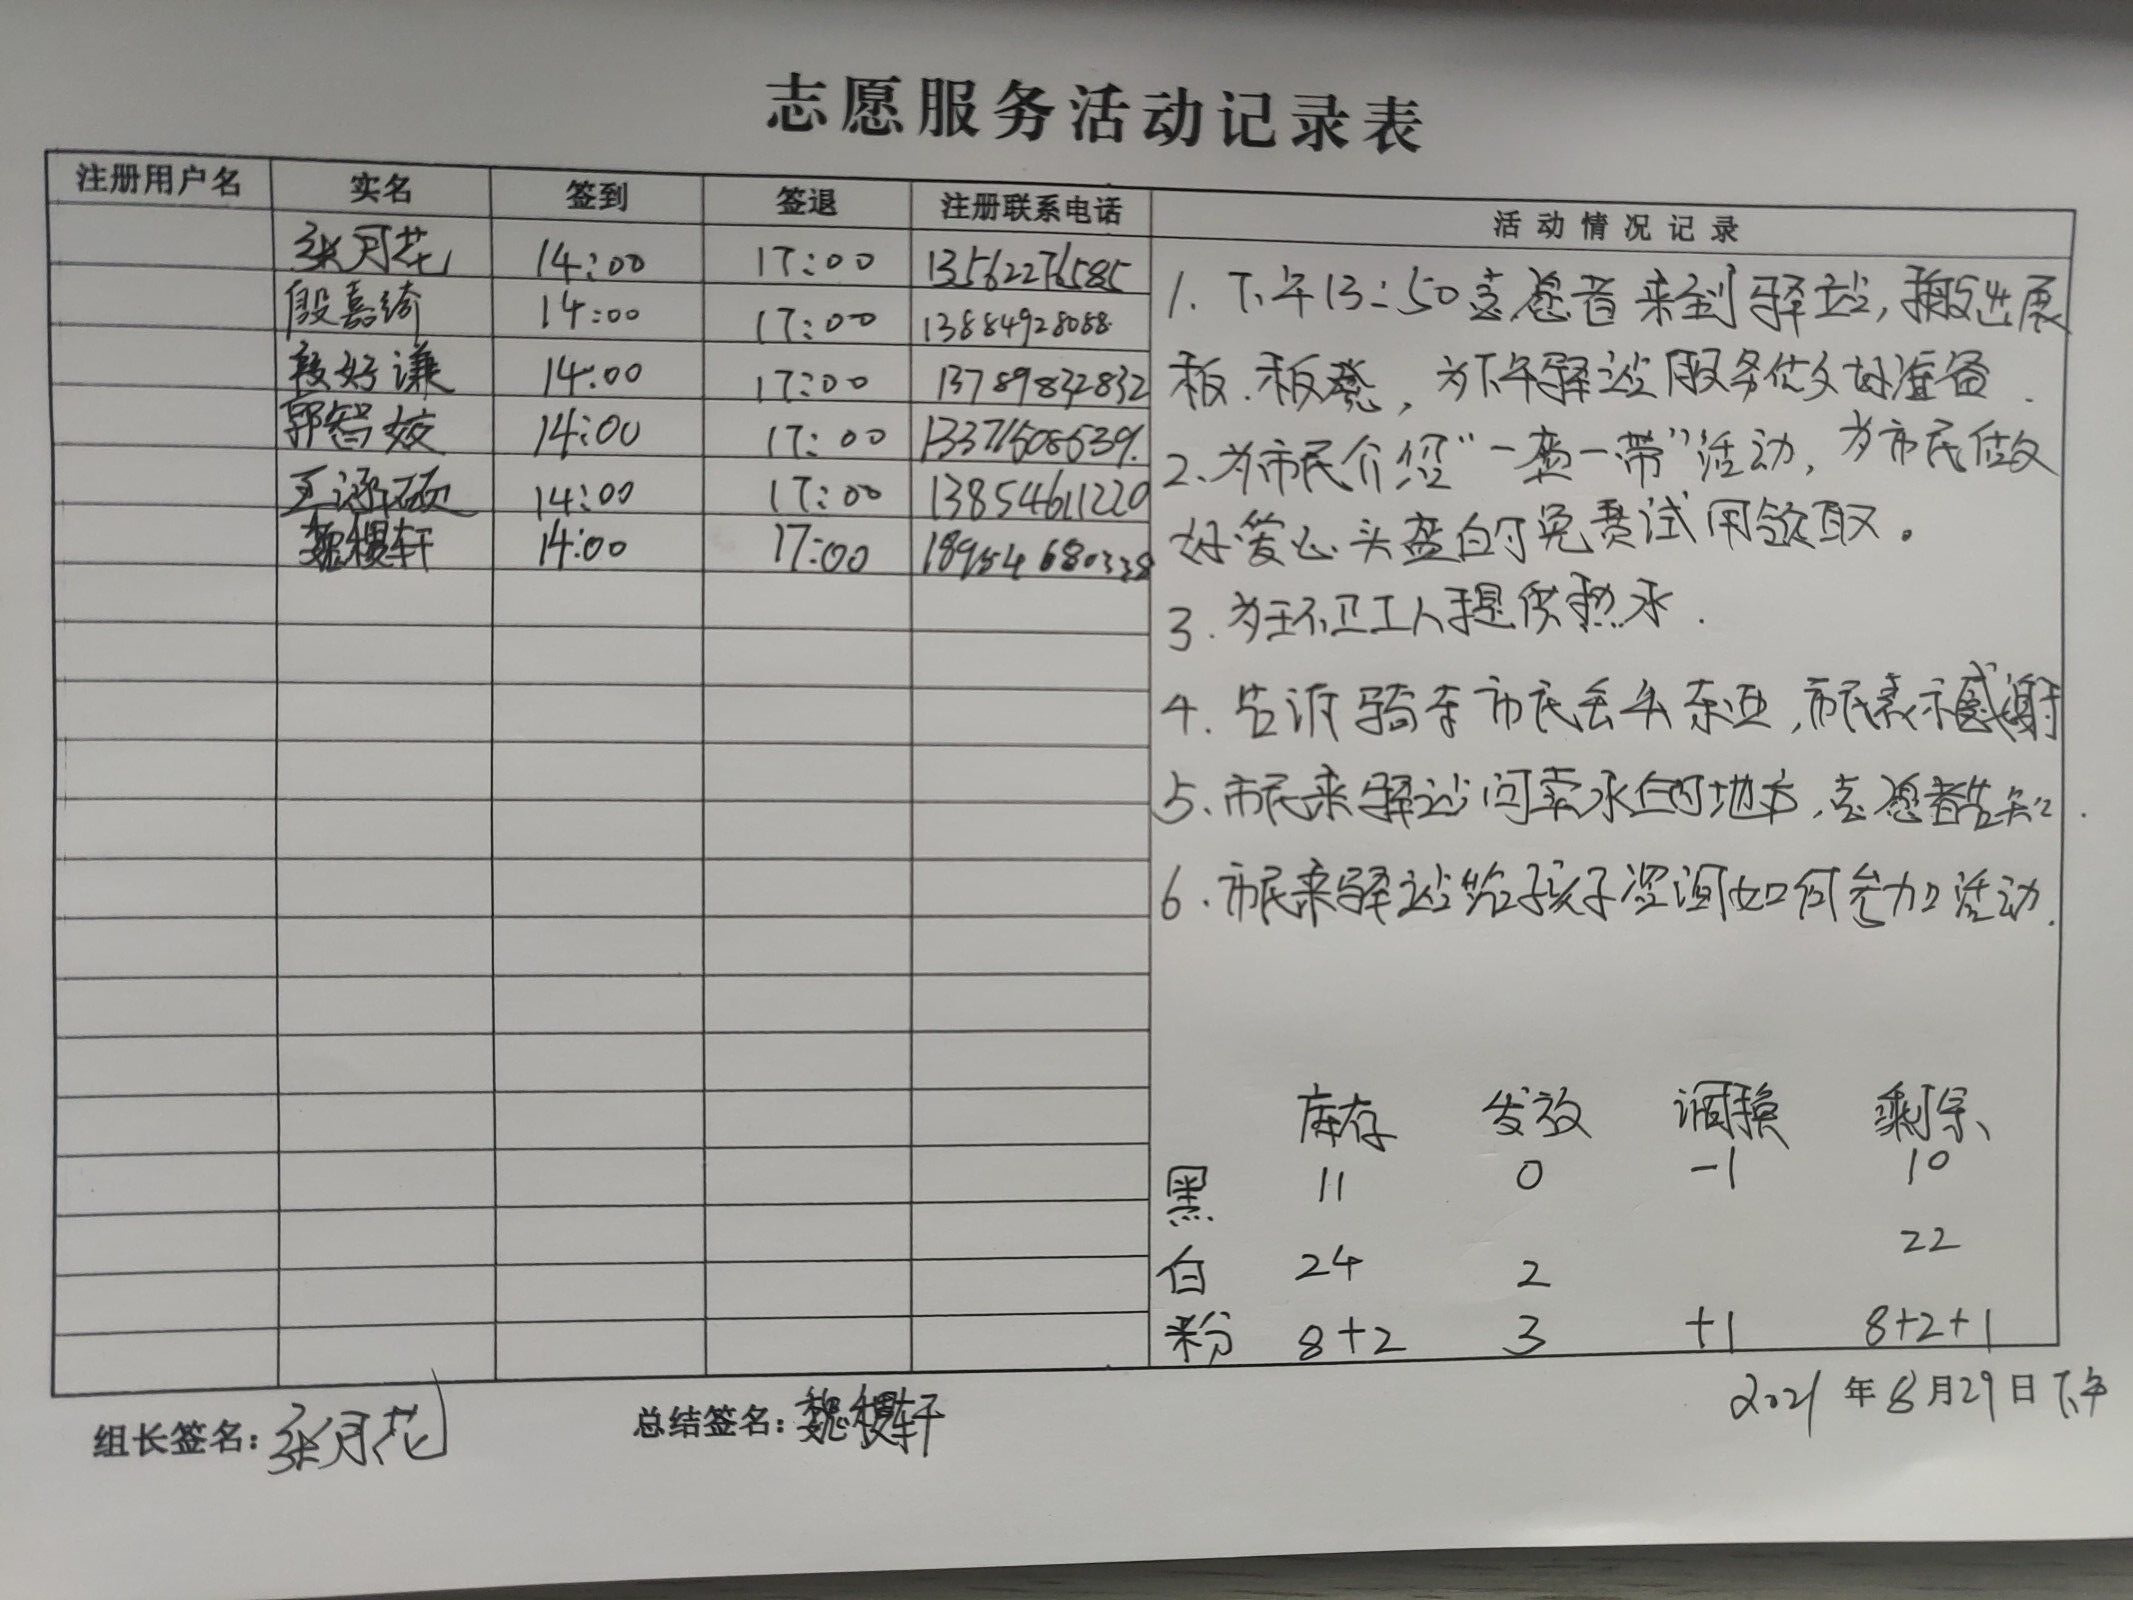 志愿服务活动记录表
注册用户名 实名 签到 签退 注册联系电话 活动情况记录
张月花 14:00 17:00 13562276585
殷嘉绮 14:00 17:00 13884928088
段好谦 14:00 17:00 13789832832
郭智姣 14:00 17:00
王涵硕 14:00 17:00 13854611220
魏稷轩 14:00 17:00
1. 下午13:50志愿者来到驿站,搬进展
板.板凳,为下午驿站服务做好准备.
2.为市民介绍“一盔一带”活动,为市民做
好爱心头盔的免费试用领取。
3.为环卫工人提供热水.
4.告诉骑车市民丢失东西,市民表示感谢
5.市民来驿站问卖水的地方,志愿者告知.
6.市民来驿站给孩子咨询如何参加活动.
库存 发放 调换 剩余
黑 11 0 -1 10
白 24 2 22
粉 8+2 3 +1 8+2+1
组长签名:张月花 总结签名:魏稷轩 2021年8月29日下午